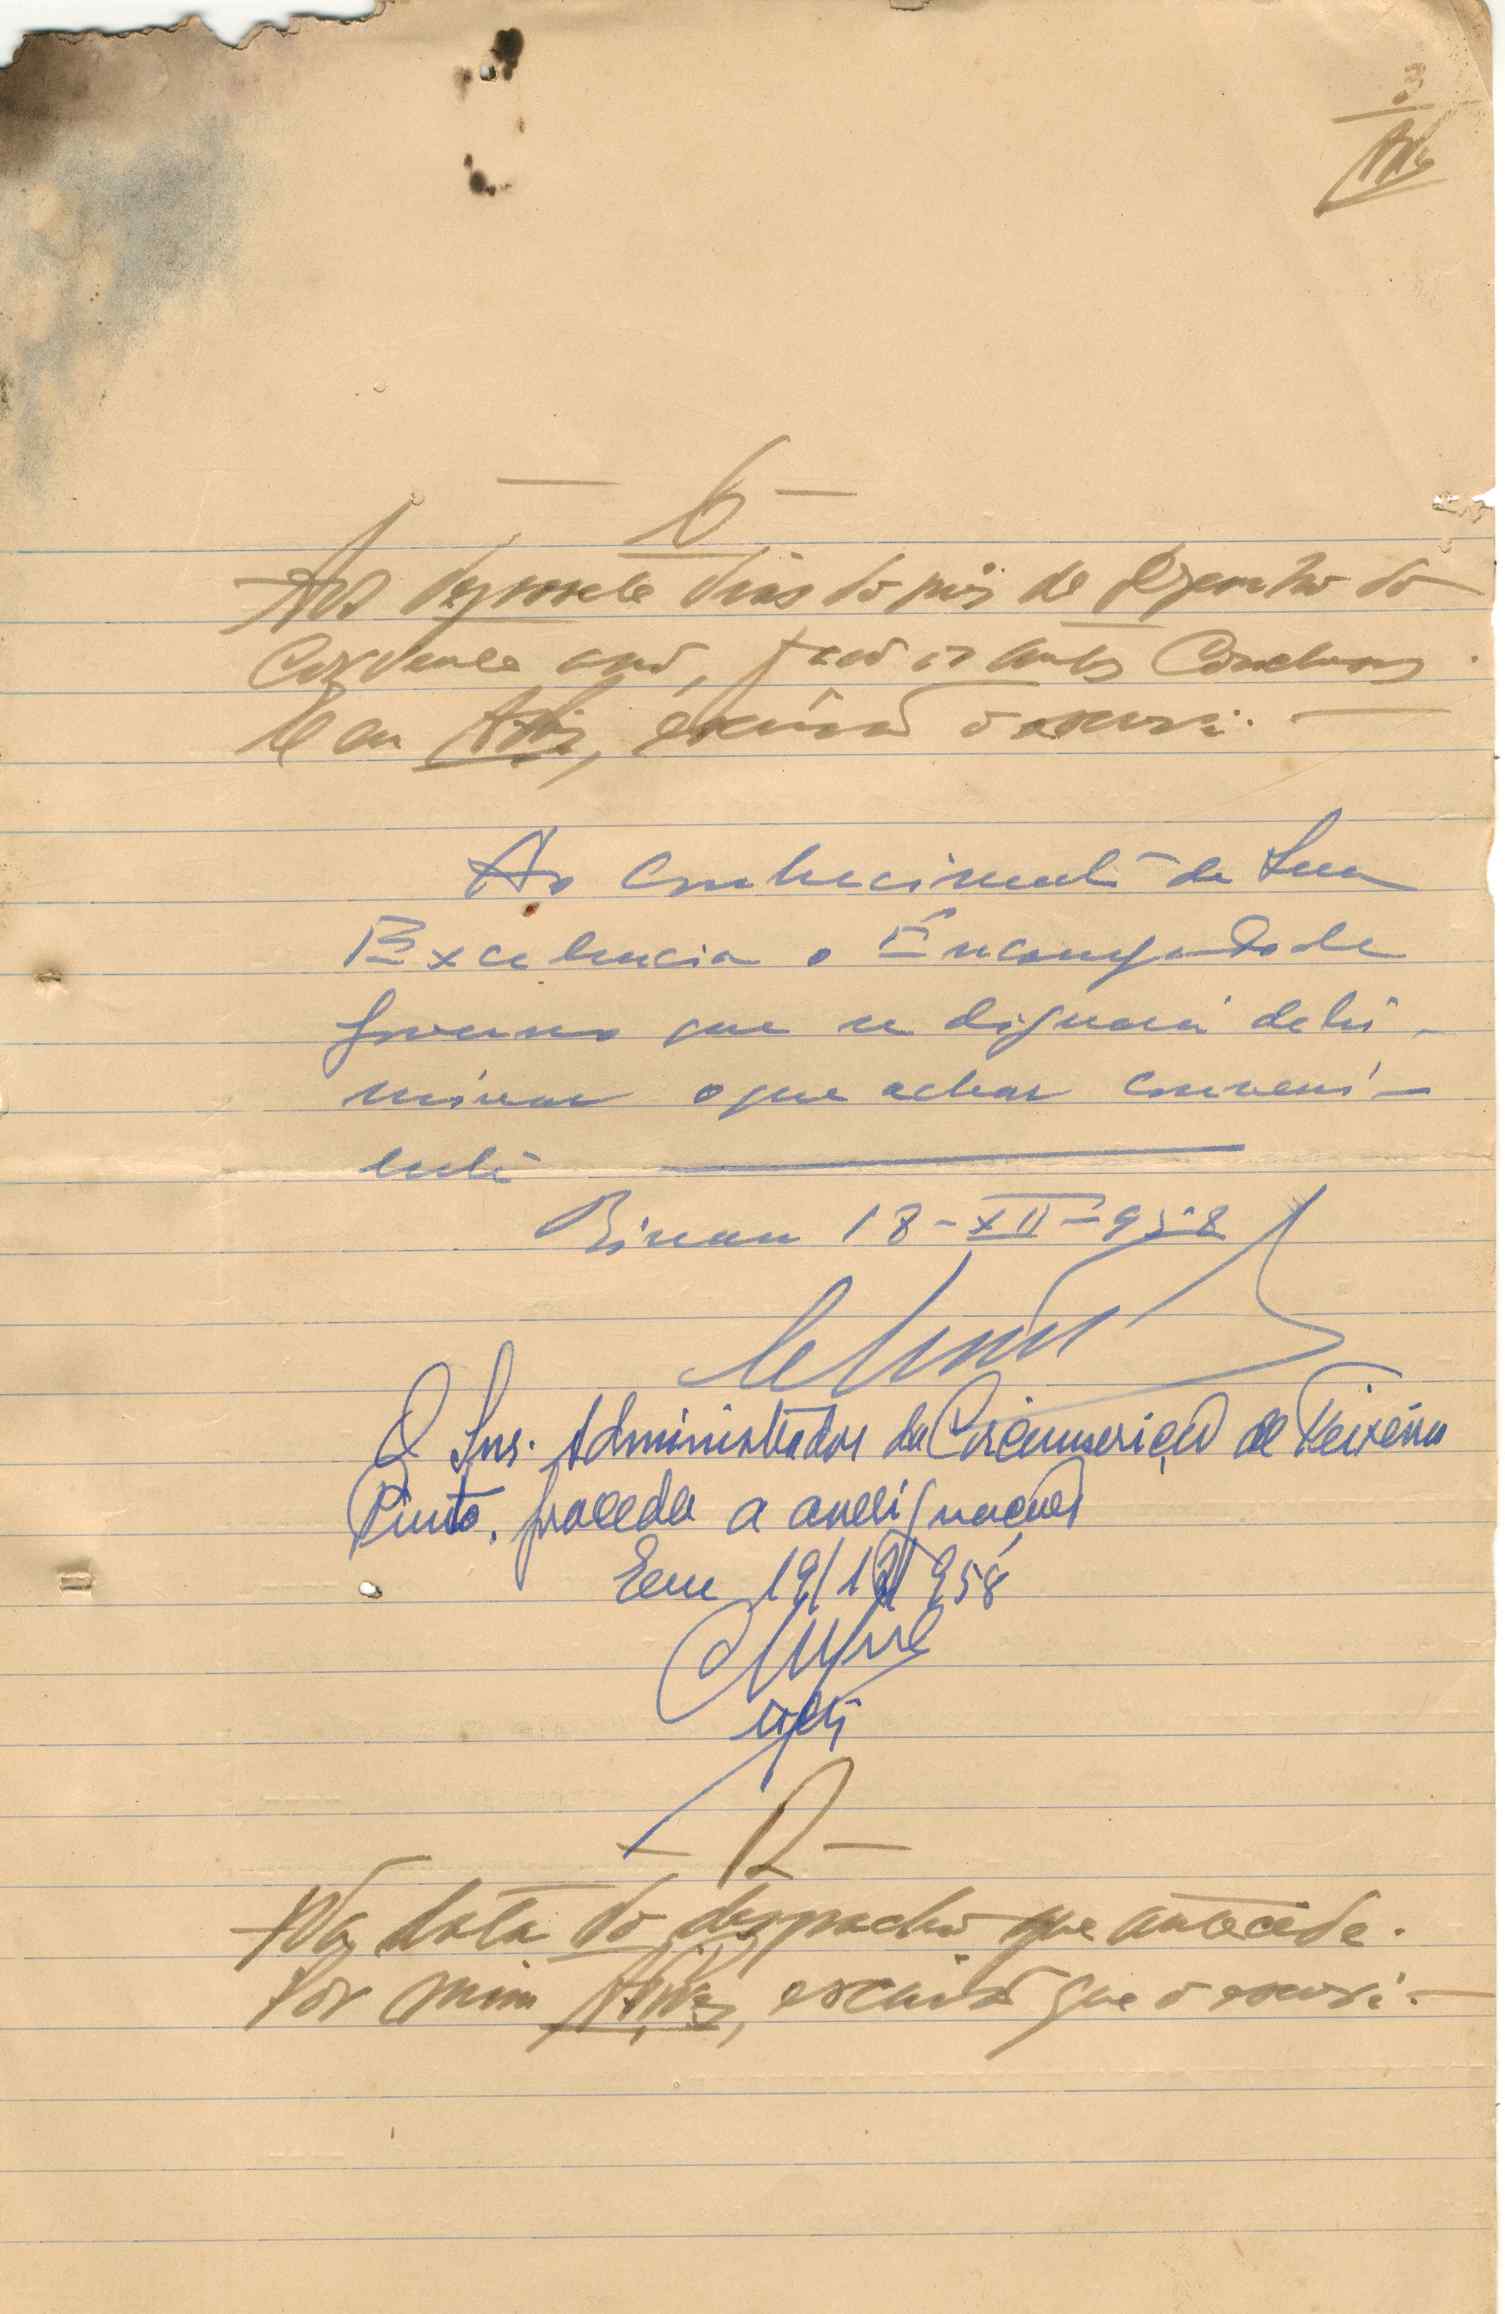 3
— C —
Aos dezassete dias do mês de Dezembro do
corrente ano, faço os autos conclusos.
E eu, escrivão o escrevi. —
Ao conhecimento de Sua
Excelencia o Encarregado de
Governo que se dignará deter-
minar o que achar conveni-
ente
Bissau 18-XII-958
O Snr. Administrador da Circunscrição de Teixeira
Pinto, proceda a averiguações
Em 19/12/958
— R —
Na data do despacho que antecede.
Por mim, escrivão que o escrevi. —